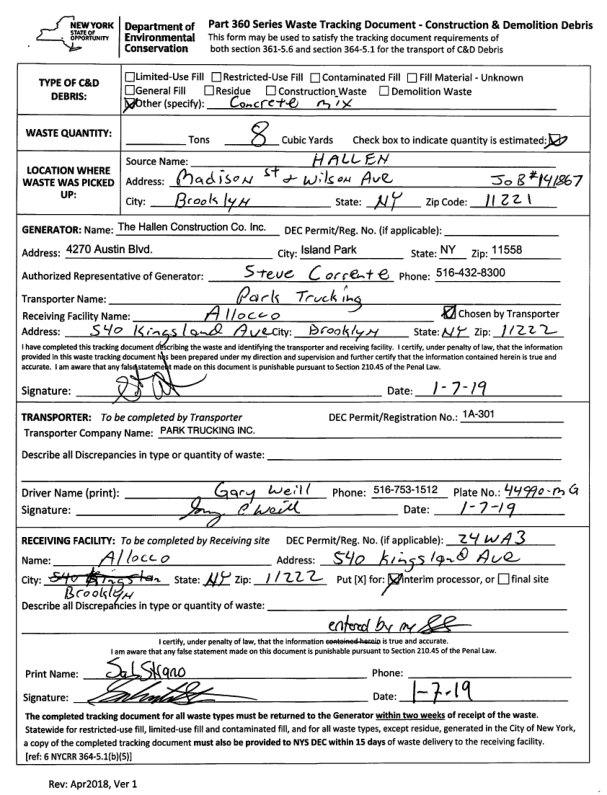 NEW YORK STATE OF OPPORTUNITY
Department of Environmental Conservation
Part 360 Series Waste Tracking Document - Construction & Demolition Debris
This form may be used to satisfy the tracking document requirements of
both section 361-5.6 and section 364-5.1 for the transport of C&D Debris
TYPE OF C&D DEBRIS:
☐Limited-Use Fill ☐Restricted-Use Fill ☐Contaminated Fill ☐Fill Material - Unknown
☐General Fill ☐Residue ☐Construction Waste ☐Demolition Waste
☒Other (specify): Concrete mix
WASTE QUANTITY: Tons 8 Cubic Yards Check box to indicate quantity is estimated: ☑
LOCATION WHERE WASTE WAS PICKED UP:
Source Name: HALLEN
Address: Madison St & Wilson Ave JoB #141867
City: Brooklyn State: NY Zip Code: 11221
GENERATOR: Name: The Hallen Construction Co. Inc. DEC Permit/Reg. No. (if applicable):
Address: 4270 Austin Blvd. City: Island Park State: NY Zip: 11558
Authorized Representative of Generator: Steve Corrente Phone: 516-432-8300
Transporter Name: Park Trucking
Receiving Facility Name: Allocco ☑ Chosen by Transporter
Address: 540 Kingsland Ave City: Brooklyn State: NY Zip: 11222
I have completed this tracking document describing the waste and identifying the transporter and receiving facility. I certify, under penalty of law, that the information
provided in this waste tracking document has been prepared under my direction and supervision and further certify that the information contained herein is true and
accurate. I am aware that any false statement made on this document is punishable pursuant to Section 210.45 of the Penal Law.
Signature: Date: 1-7-19
TRANSPORTER: To be completed by Transporter DEC Permit/Registration No.: 1A-301
Transporter Company Name: PARK TRUCKING INC.
Describe all Discrepancies in type or quantity of waste:
Driver Name (print): Gary Weill Phone: 516-753-1512 Plate No.: 44990-mG
Signature: Gary C Weill Date: 1-7-19
RECEIVING FACILITY: To be completed by Receiving site DEC Permit/Reg. No. (if applicable): 24WA3
Name: Allocco Address: 540 Kingsland Ave
City: 540 Kingslan State: NY Zip: 11222 Put [X] for: ☒interim processor, or ☐final site
Brooklyn
Describe all Discrepancies in type or quantity of waste:
entered by my SS
I certify, under penalty of law, that the information contained herein is true and accurate.
I am aware that any false statement made on this document is punishable pursuant to Section 210.45 of the Penal Law.
Print Name: Phone:
Signature: Date: 1-7-19
The completed tracking document for all waste types must be returned to the Generator within two weeks of receipt of the waste.
Statewide for restricted-use fill, limited-use fill and contaminated fill, and for all waste types, except residue, generated in the City of New York,
a copy of the completed tracking document must also be provided to NYS DEC within 15 days of waste delivery to the receiving facility.
[ref: 6 NYCRR 364-5.1(b)(5)]
Rev: Apr2018, Ver 1